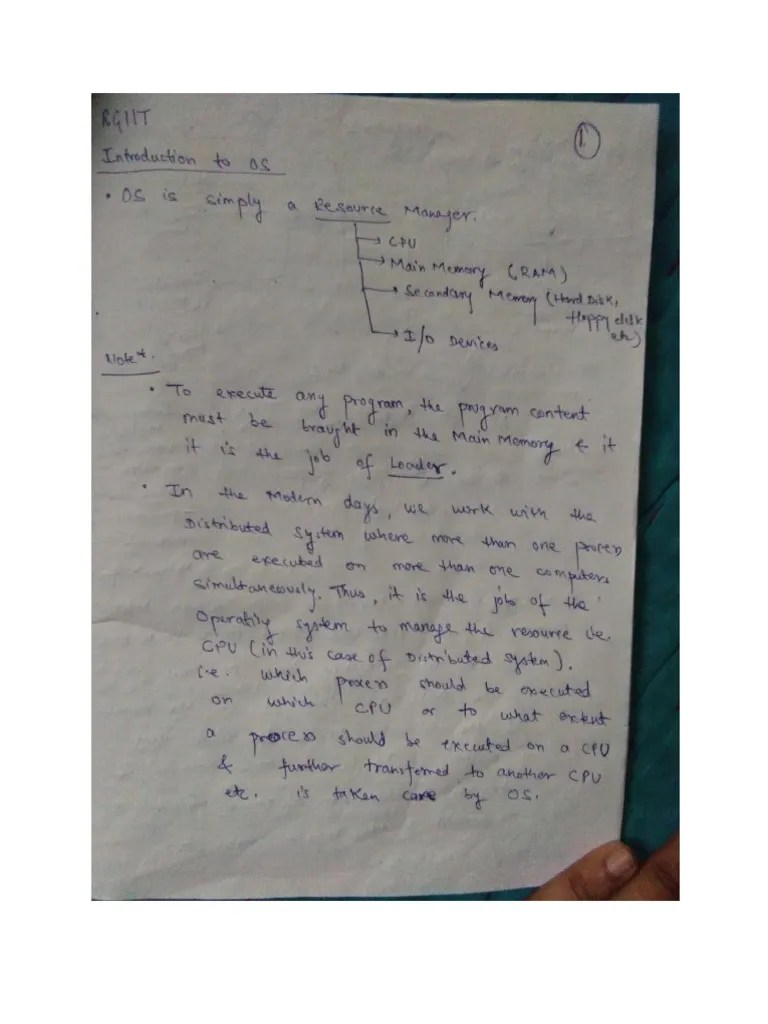 RGIIT
1.
Introduction to OS
• OS is simply a Resource Manager.
→ CPU
→ Main Memory (RAM)
→ Secondary Memory (Hard Disk,
Floppy disk
etc)
→ I/O Devices
Note*.
• To execute any program, the program content
must be braught in the Main Memory & it
it is the job of Loader.
• In the Modern days, we work with the
Distributed system where more than one process
are executed on more than one computers
simultaneously. Thus, it is the job of the
Operating system to manage the resource i.e.
CPU (in this case of Distributed system).
i.e. which process should be executed
on which CPU or to what extent
a process should be executed on a CPU
& further transferred to another CPU
etc. is taken care by OS.